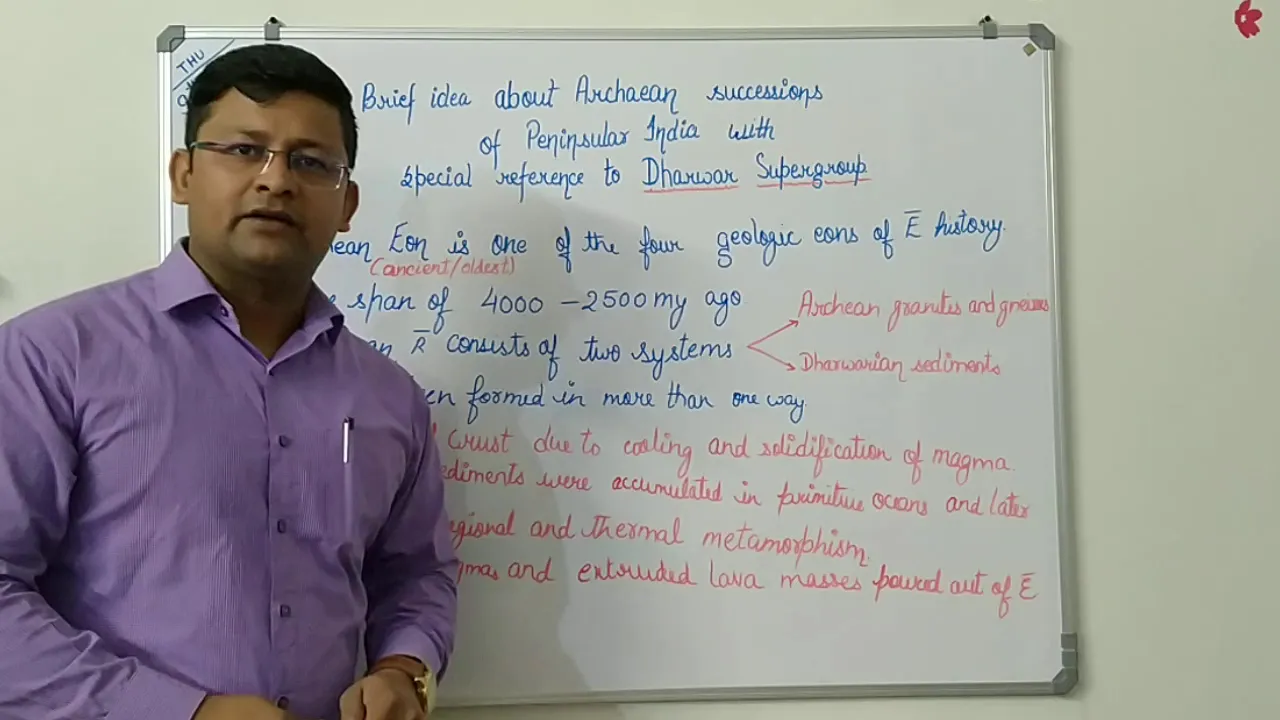 THU
Brief idea about Archaean successions
of Peninsular India with
special reference to Dharwar Supergroup
ean Eon is one of the four geologic eons of Ē history.
(ancient/oldest)
e span of 4000 – 2500 my ago
an R̄ consists of two systems
Archean granites and gneisses
Dharwarian sediments
en formed in more than one way.
crust due to cooling and solidification of magma.
ediments were accumulated in primitive oceans and later
egional and thermal metamorphism.
gmas and extruded lava masses poured out of Ē